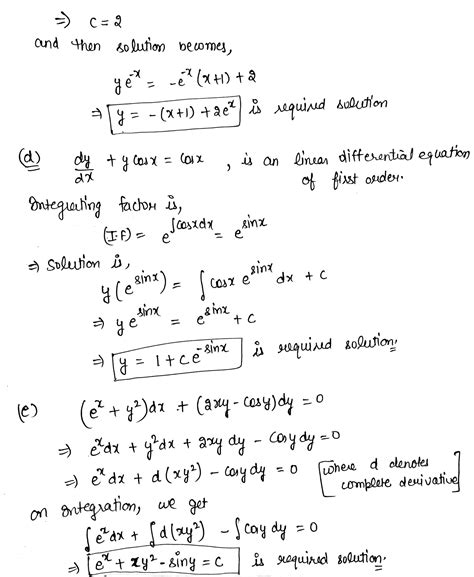 ⇒ c = 2
and then solution becomes,
ye^{-x} = -e^{-x}(x+1) + 2
⇒ y = -(x+1) + 2e^{x} is required solution
(d) dy/dx + y cosx = cosx , is an linear differential equation
of first order.
Integrating factor is,
(I.F) = e^{∫cosxdx} = e^{sinx}
⇒ Solution is,
y(e^{sinx}) = ∫ cosx e^{sinx} dx + c
⇒ ye^{sinx} = e^{sinx} + c
⇒ y = 1 + ce^{-sinx} is required solution.
(e) (e^{x} + y²)dx + (2xy - cosy)dy = 0
⇒ e^{x}dx + y²dx + 2xy dy - cosy dy = 0
⇒ e^{x}dx + d(xy²) - cosy dy = 0 [where d denotes
complete derivative]
on integration, we get
∫e^{x}dx + ∫d(xy²) - ∫cosy dy = 0
⇒ e^{x} + xy² - siny = c is required solution.